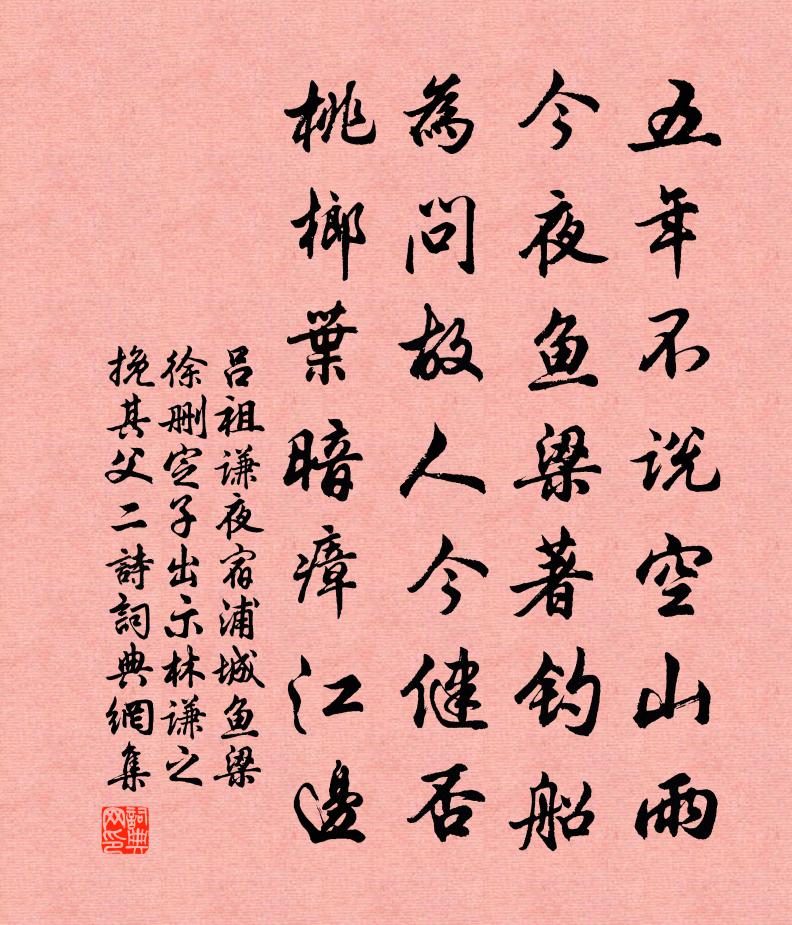 五年不说空山雨
今夜鱼梁著钓船
為问故人今健否
桃榔葉暗瘴江邊
吕祖谦夜宿浦城鱼梁
徐删定子出示林谦之
挽其父二詩詞典網集
詞典网印